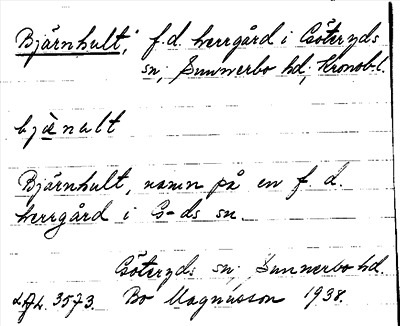 Bjärnhult, f.d. herrgård i Göteryds
sn, Sunnerbo hd, Kronobl.
bjænalt
Bjärnhult, namn på en f. d.
herrgård i G-ds sn.
Göteryds sn, Sunnerbo hd.
LAL. 3573. Bo Magnusson 1938.